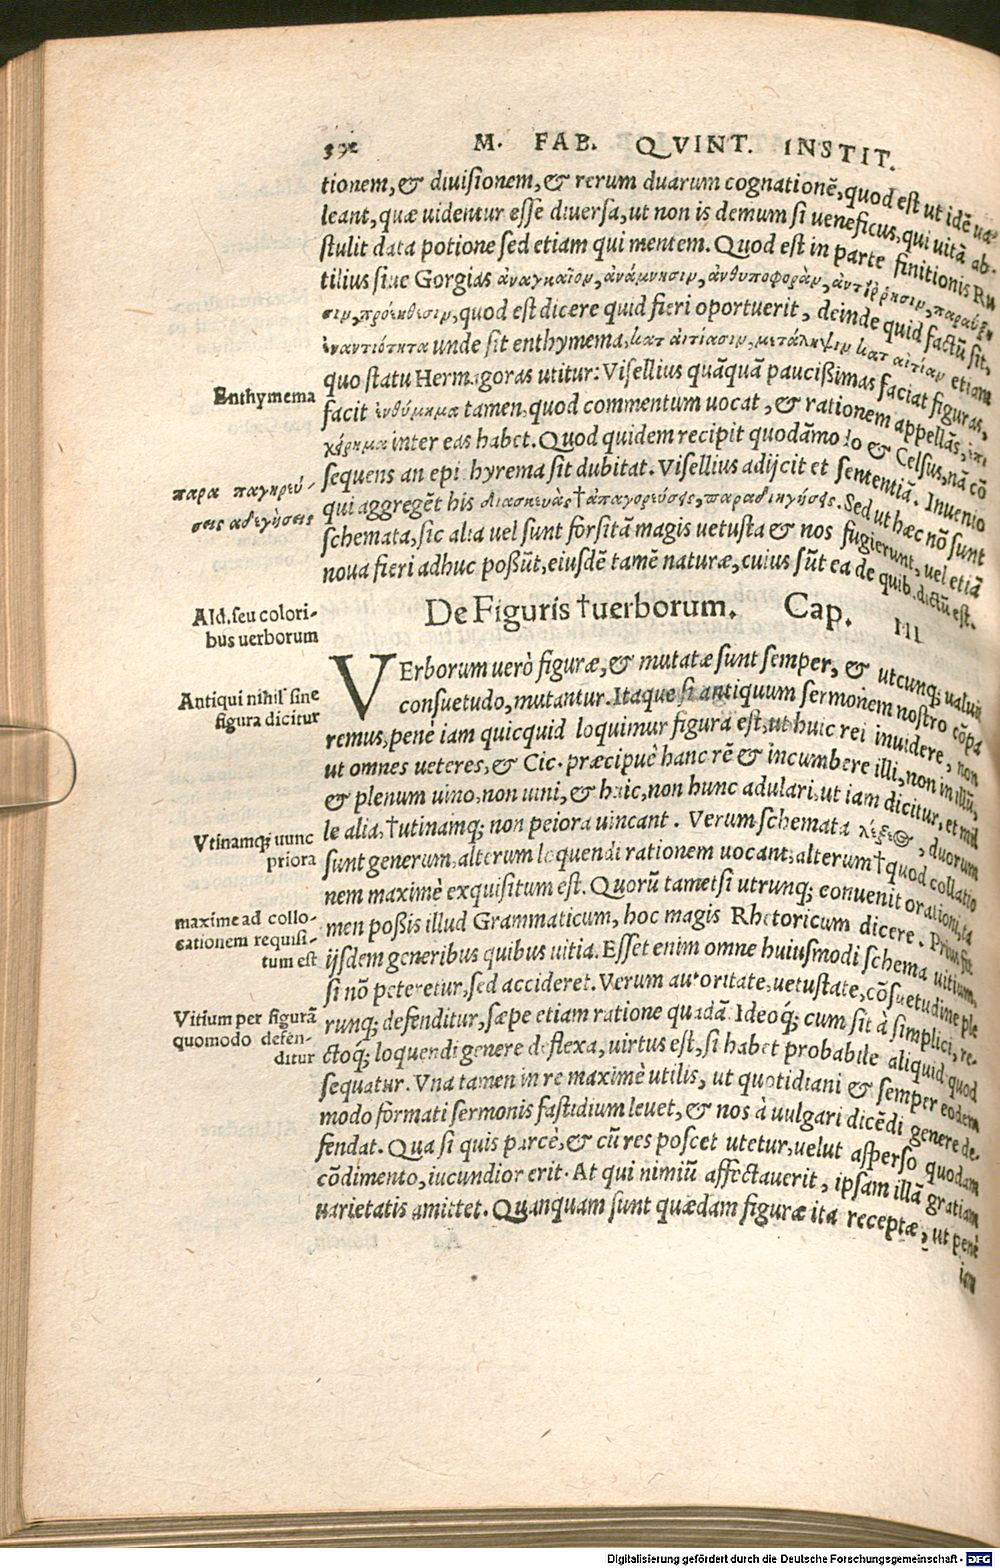 392 M. FAB. QVINT. INSTIT.
tionem, & diuisionem, & rerum duarum cognationē, quod est ut idē ua=
leant, quæ uidentur esse diuersa, ut non is demum si ueneficus, qui uitā ab-
stulit data potione sed etiam qui mentem. Quod est in parte finitionis Ru
tilius siue Gorgias ἀναγκαῖον, ἀνάμνησιν, ἀνθυποφορὰν, ἀντίῤῥησιν, παραύξη
σιν, πρόεκθεσιν, quod est dicere quid fieri oportuerit, deinde quid factū sit,
ἐναντιότητα unde sit enthymema, κατ αἰτίασιν, μετάληψιν κατ αἰτίαν etiam
Enthymema
quo statu Hermagoras utitur: Visellius quāquā paucißimas faciat figuras,
facit ἐνθύμημα tamen, quod commentum uocat, & rationem appellās, ἐπι
χείρημα inter eas habet. Quod quidem recipit quodāmodo & Celsus, nā cō
sequens an epichyrema sit dubitat. Visellius adijcit et sententiā. Inuenio
παρα παγηρεύ-
σεις αδιγήσεις
qui aggregēt his διασκευὰς † ἀπαγορεύσεις, παραδιηγήσεις. Sed ut hæc nō sunt
schemata, sic alia uel sunt forsitā magis uetusta & nos fugierunt, uel etiā
noua fieri adhuc poßūt, eiusdē tamē naturæ, cuius sūt ea de quib. dictū est.
Ald. seu colori-
bus uerborum
De Figuris † uerborum. Cap. III
VErborum uerò figuræ, & mutatæ sunt semper, & utcunq; ualuit
Antiqui nihil sine
figura dicitur
consuetudo, mutantur. Itaque si antiquum sermonem nostro cōpa
remus, penè iam quicquid loquimur figura est, ut huic rei inuidere, non
ut omnes ueteres, & Cic. præcipuè hanc rē & incumbere illi, non in illū,
& plenum uino, non uini, & huic, non hunc adulari, ut iam dicitur, et mil
Vtinamq; uunc
priora
le alia, † utinamq; non peiora uincant. Verum schemata λέξεως, duorum
sunt generum, alterum loquendi rationem uocant, alterum † quod collatio
maxime ad collo-
cationem requisi-
tum est
nem maximè exquisitum est. Quorū tametsi utrunq; conuenit orationi, ta
men poßis illud Grammaticum, hoc magis Rhetoricum dicere. Prius fit
ijsdem generibus quibus uitia. Esset enim omne huiusmodi schema uitium,
si nō peteretur, sed accideret. Verum autoritate, uetustate, cōsuetudine ple
Vitium per figurā
quomodo defen-
ditur
runq; defenditur, sæpe etiam ratione quadā. Ideoq́; cum sit à simplici, re-
ctoq́; loquendi genere deflexa, uirtus est, si habet probabile aliquid quod
sequatur. Vna tamen in re maximè utilis, ut quotidiani & semper eodem
modo formati sermonis fastidium leuet, & nos à uulgari dicēdi genere de-
fendat. Qua si quis parcè, & cū res poscet utetur, uelut asperso quodam
cōdimento, iucundior erit. At qui nimiū affectauerit, ipsam illā gratiam
uarietatis amittet. Quanquam sunt quædam figuræ ita receptæ, ut penè
iam
Digitalisierung gefördert durch die Deutsche Forschungsgemeinschaft - DFG